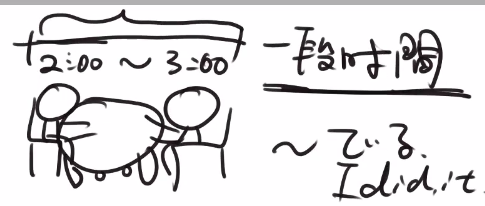 2:00 ～ 3:00
一段时間
～ている.
I did it.